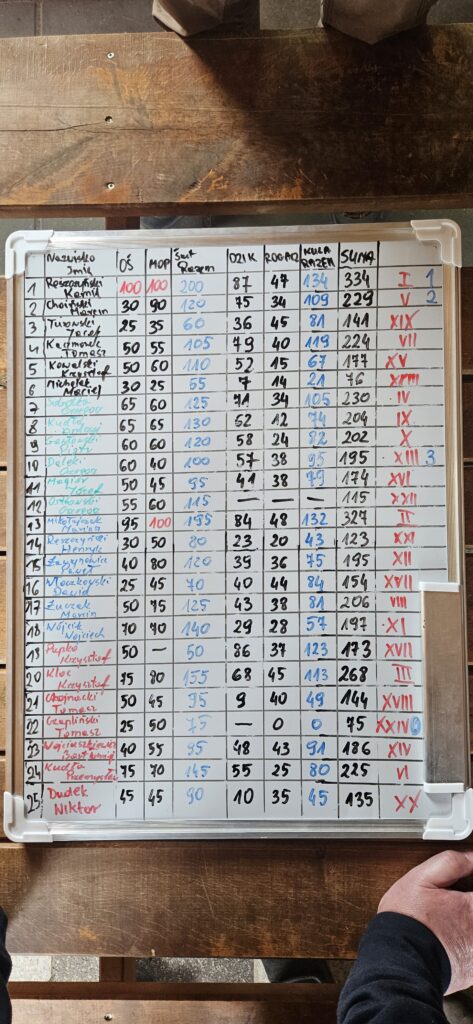 Nazwisko Imię OŚ MOP Śrut Razem DZIK ROGACZ KULA RAZEM SUMA
1 Roszczyński Kamil 100 100 200 87 47 134 334 I 1
2 Choiński Marcin 30 90 120 75 34 109 229 V 2
3 Turowski Józef 25 35 60 36 45 81 141 XIX
4 Kaczmarek Tomasz 50 55 105 79 40 119 224 VII
5 Kowalski Krzysztof 50 60 110 52 15 67 177 XV
6 Michałek Maciej 30 25 55 7 14 21 76
7 65 60 125 71 34 105 230 IV
8 Kudła 65 65 130 62 12 74 204 IX
9 Piotr 60 60 120 58 24 82 202 X
10 60 40 100 57 38 95 195 XIII 3
11 Magier Józef 50 45 95 41 38 79 174 XVI
12 55 60 115 — — — 115 XXII
13 Mikołajczak 95 100 195 84 48 132 327 II
14 Roszczyński Henryk 30 50 80 23 20 43 123 XXI
15 Paweł 40 80 120 39 36 75 195 XII
16 Dawid 25 45 70 40 44 84 154 XVII
17 Żuczek Marcin 50 75 125 43 38 81 206 VIII
18 Wójcik Wojciech 70 70 140 29 28 57 197 XI
19 Pupka Krzysztof 50 — 50 86 37 123 173 XVII
20 Kloc Krzysztof 75 80 155 68 45 113 268 III
21 Chojnacki Tomasz 50 45 95 9 40 49 144 XVIII
22 Czapliński Tomasz 25 50 75 — 0 0 75 XXIV
23 40 55 95 48 43 91 186 XIV
24 Kudła Przemysław 75 70 145 55 25 80 225 VI
25 Dudek Wiktor 45 45 90 10 35 45 135 XX